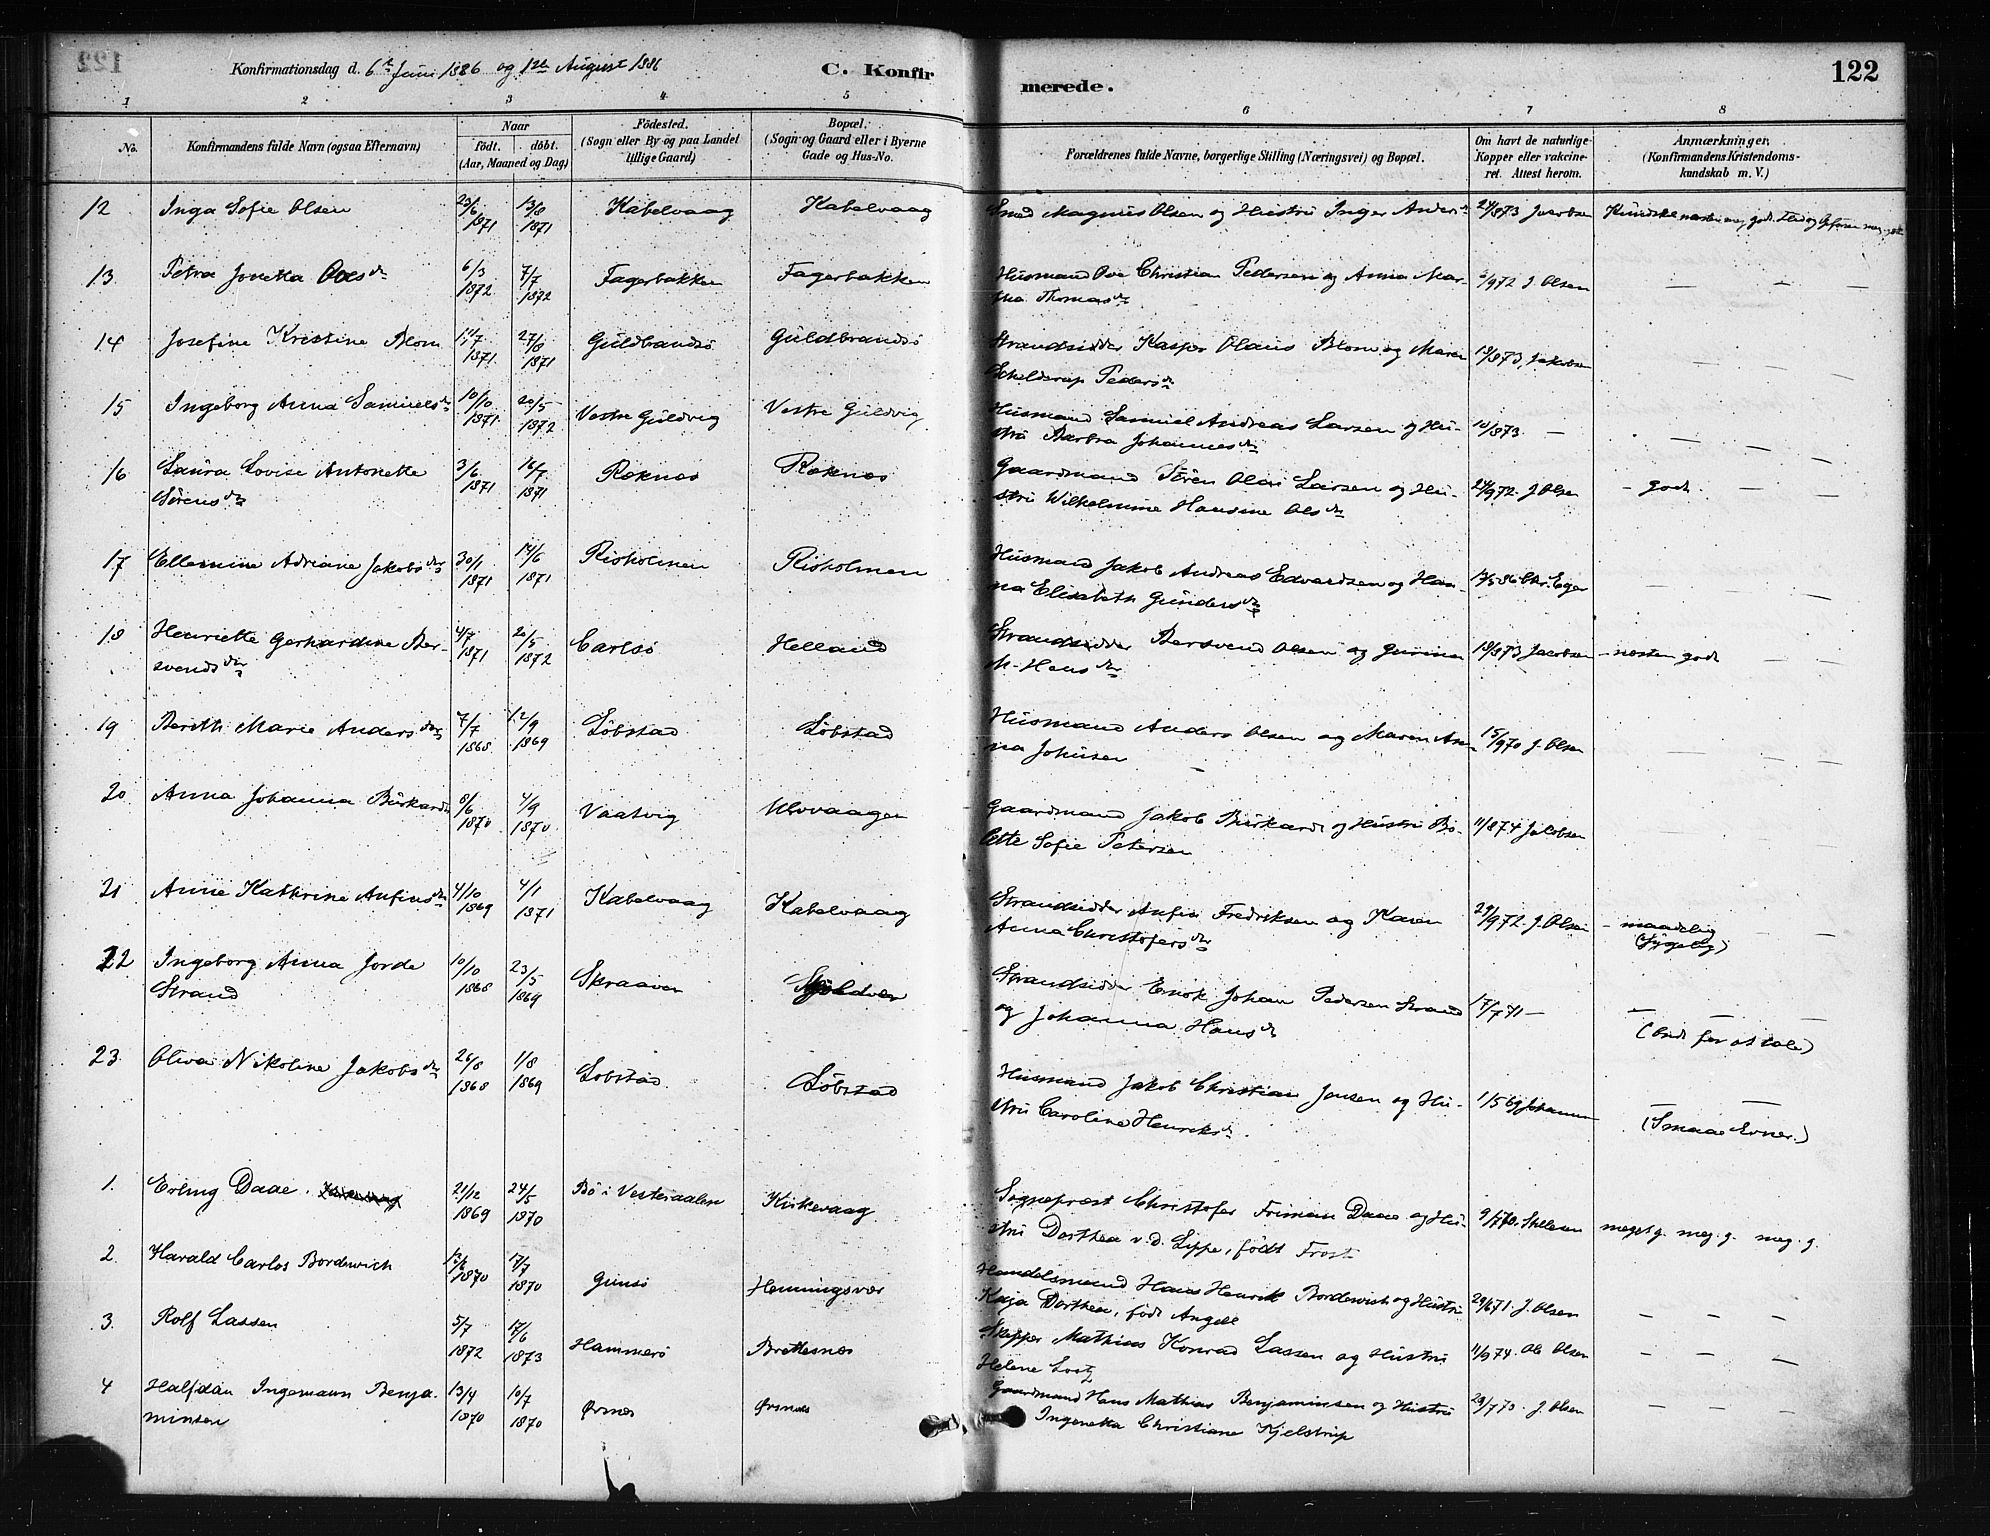 Konfirmationsdag d. 6te Juni 1886 og 1ste August 1886 C. Konfirmerede. 122
1 2 3 4 5 6 7 8
No. Konfirmandens fulde Navn (ogsaa Efternavn) Naar födt. döbt. (Aar, Maaned og Dag) Födested. (Sogn eller By og paa Landet tillige Gaard) Bopæl. (Sogn og Gaard eller i Byerne Gade og Hus-No. Forældrenes fulde Navne, borgerlige Stilling (Næringsvei) og Bopæl. Om havt de naturlige Kopper eller vakcineret. Attest herom. Anmærkninger, (Konfirmandens Kristendomskundskab m. V.)
12 Inga Sofie Olsen 23/6 1871 13/8 1871 Kabelvaag Kabelvaag Smed Magnus Olsen og Hustru Inger Andersdr 24/873 Jacobsen
13. Petra Jonetta Ovesdr 6/3 1872 7/7 1872 Fagerbakken Fagerbakken Husmand Ove Christian Pedersen og Anna Mar-
tha Thomasdr /972 J. Olsen — — —
14 Josefine Kristine Blom 11/7 1871. 27/8 1871 Guldbrandsö Guldbrandsö Strandsidder Kasper Olaus Blom og Maren
Schelderup Pedersdr 19/873, Jakobsen — — —
15 Ingeborg Anna Samuelsdr 10/10 1871. 20/5 1872 Vestre Guldvig Vestre Guldvig Husmand Samuel Andreas Larsen og Hu-
stru Barbra Johannesdr 10/873. — — — —
16 Laura Lovise Antonette
Sörensdr 3/6 1871 16/7 1871 Roknes Roknes Gaardmand Sören Olai Larsen og Hu-
stru Wilhelmine Hansine Olsdr 24/972. J. Olsen — godt. — —
17 Ellemine Adriane Jakobsdr 30/1 1871 14/6 1871 Risholmen Risholmen Husmand Jakob Andreas Edvardsen og Han-
na Elisabeth Gundersdr 17/586 Chr. Eger — — —
18 Henriette Gerhardine Ber-
svendsdr 4/7 1871 20/5 1872 Carlsö Helland Strandsidder Bersvend Olsen og Gurina
M. Hansdr 19/873 Jacobsen — næsten godt — —
19 Bereth Marie Andersdr 7/7 1868 12/9 1869 Löbstad Löbstad Husmand Anders Olsen og Maren An-
na Johnsen 15/970 J. Olsen — — —
20 Anna Johanna Burkardt 8/6 1870 4/9 1870. Vaatvig Ulvaagen Gaardmand Jakob Burkardt og Hustru Bo-
lette Sofie Petersen 11/874 Jakobsen — — —
21 Anne Kathrine Anfinsdr 4/10 1869 4/1 1871 Kabelvaag Kabelvaag Strandsidder Anfin Fredriksen og Karen
Anna Christofersdr 29/972. J. Olsen — maadelig — —
(Sygelig)
22 Ingeborg Anna Jorde
Strand 10/10 1868 23/5 1869 Skraaven Strandsidder Enok Johan Pedersen Strand
og Johanna Hansdr 17/771 — — — —
23. Oliva Nikoline Jakobsdr 26/8 1868 1/8 1869 Löbstad Löbstad Husmand Jakob Christian Jensen og Hu-
stru Caroline Henriksdr. 1/569 Johannsen — — (Smaae Evner.)
1. Erling Daae. 21/12 1869 24/5 1870 Bö i Vesteraalen Kirkevaag Sogneprest Christofer Friman Daae og Hu-
stru Dorthea v. d. Lippe, födt Frost 9/770. meget g. meg. g. meg. g.
2. Harald Carlos Bordewich 1870 17/7 1870 Gimsö Henningsvær Handelsmand Hans Henrik Bordewich og Hustru
Kaja Dorthea, födt Angell 29/671 J. Olsen — — —
3. Rolf Lassen 5/7 1872 17/6 1873 Hammerö Brettesnes Skipper Mathias Konrad Lassen og Hustru
Helene Lortz 11/974. Ole Olsen — — —
4 Halfdan Ingemann Benja-
minsen 13/4 1870 10/7 1870 Örsnes Örsnes Gaardmand Hans Mathias Benjaminsen og Hustru
Ingenetta Christiane Kjelstrup 29/770. J. Olsen — — —